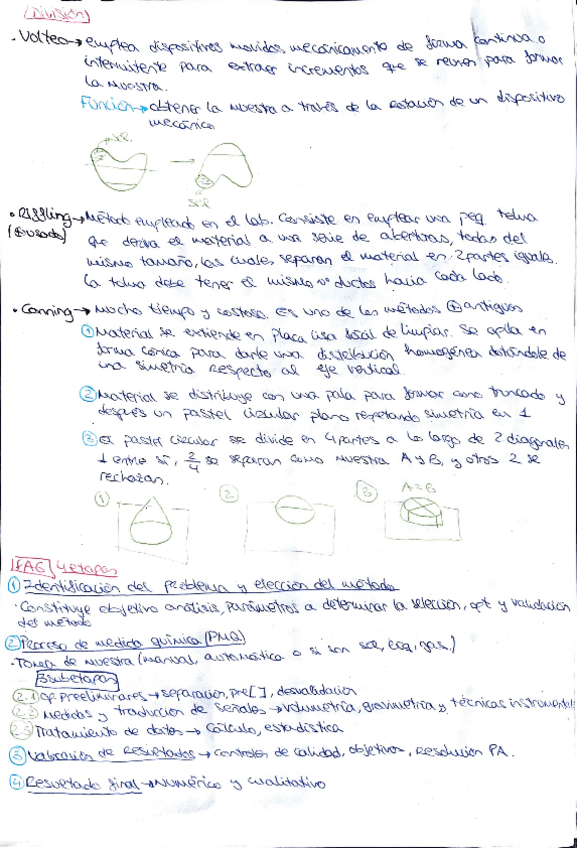 División
· Volteo → emplea dispositivos movidos mecánicamente de forma continua o
intermitente para extraer incrementos que se reunen para formar
la muestra.
Función → obtener la muestra a través de la rotación de un dispositivo
mecánico
· Riffling → Método empleado en el lab. Consiste en emplear una peq tolva
(+ usado) que deriva el material a una serie de aberturas, todas del
mismo tamaño, las cuales, separan el material en 2 partes iguales.
La tolva debe tener el mismo nº ductos hacia cada lado.
· Conning → Mucho tiempo y costoso. Es uno de los métodos ⊕ antiguos
① Material se extiende en placa lisa fácil de limpiar. Se apila en
forma cónica para darle una distribución homogénea dotándole de
una simetría respecto al eje vertical
② Material se distribuye con una pala para formar cono truncado y
después un pastel circular plano respetando simetría en 1
③ El pastel circular se divide en 4 partes a lo largo de 2 diagonales
⊥ entre sí, 2/4 se separan como muestra A y B, y otros 2 se
rechazan.
① ② ③ A=B
4 etapas
① Identificación del problema y elección del método
· Constituye objetivo análisis, parámetros a determinar la selección, opt y validación
del método
② Proceso de medida química (PMQ)
· Toma de muestra (manual, automática o si son sol, líq, gas.)
3 subetapas
2.1 op preeliminares → separación, pre[ ],
2.2 Medidas y traducción de señales → volumetría, gravimetría y técnicas instrumental
2.3 Tratamiento de datos → cálculo, estadística
③ Valoración de resultados → controles de calidad, objetivos, resolución PA.
④ Resultado final → numérico y cualitativo